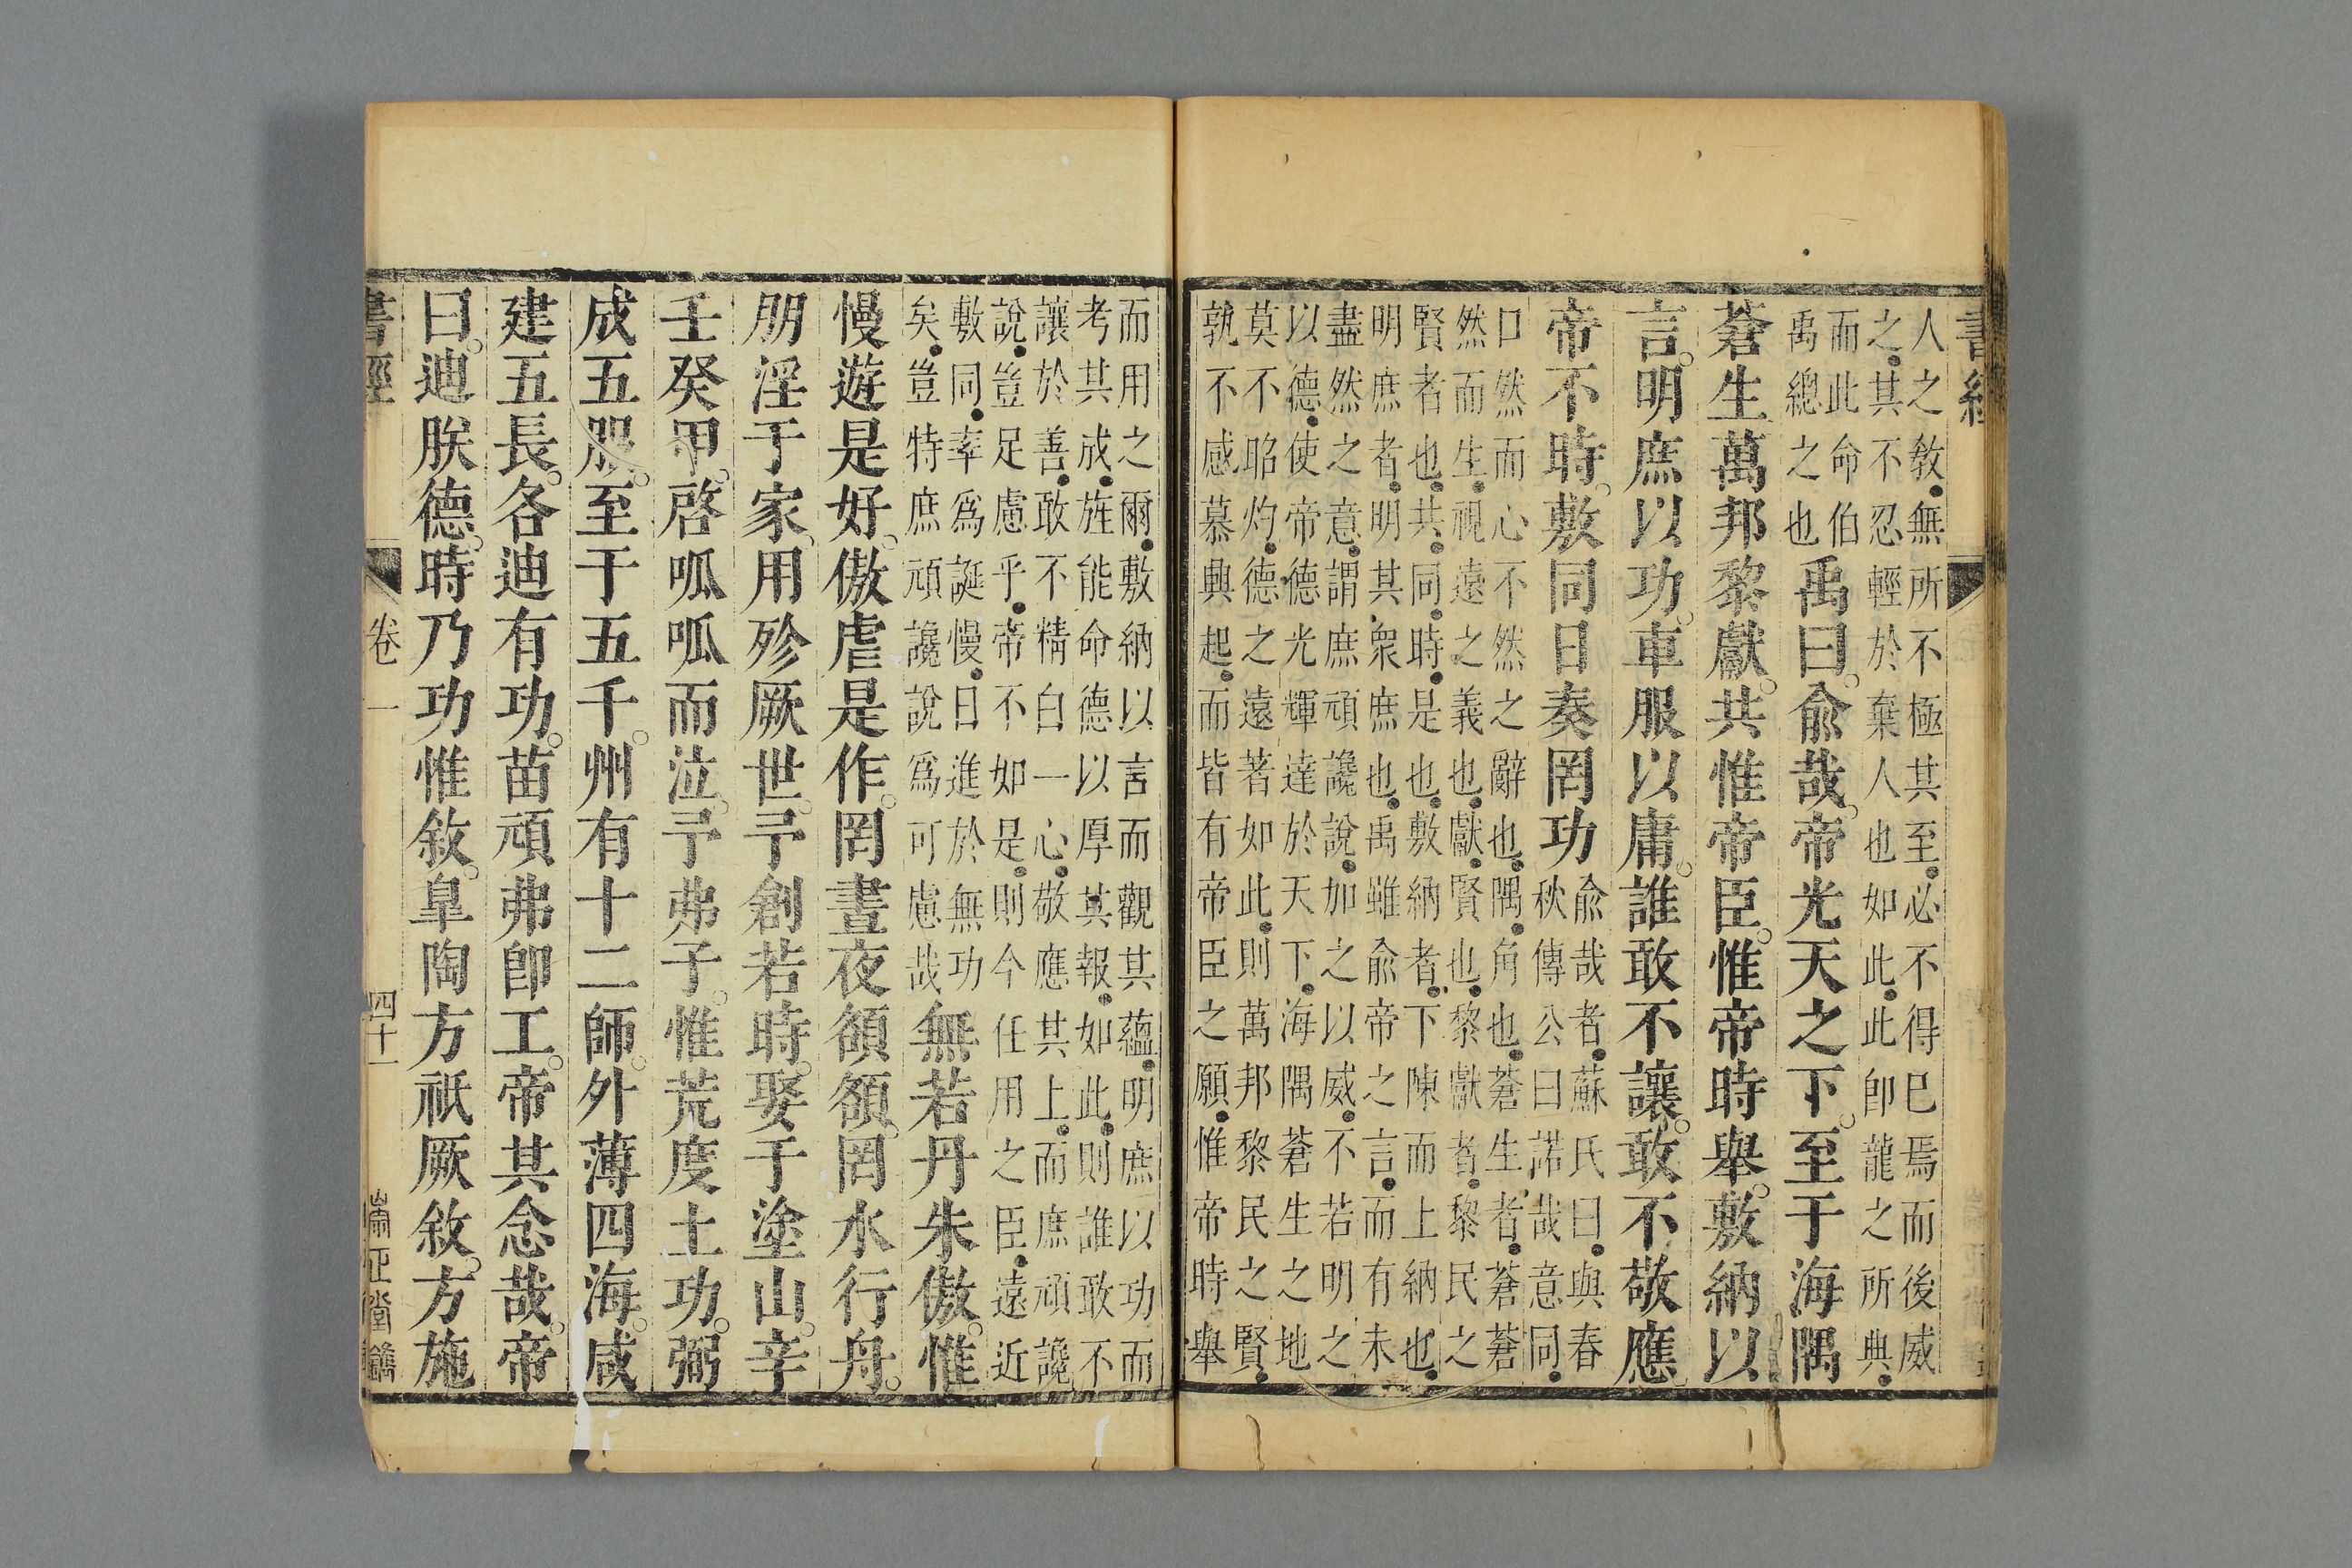 書經
人之敎無所不極其至必不得巳焉而後威
之其不忍輕於棄人也如此此卽龍之所典
而此命伯
禹總之也
禹曰俞哉帝光天之下至于海隅
蒼生萬邦黎獻共惟帝臣惟帝時舉敷納以
言明庶以功車服以庸誰敢不讓敢不敬應
帝不時敷同日奏罔功
俞哉者蘇氏曰與春
秋傳公曰諾哉意同
口然而心不然之辭也隅角也蒼生者蒼蒼
然而生視遠之義也獻賢也黎獻者黎民之
賢者也共同時是也敷納者下陳而上納也
明庶者明其衆庶也禹雖俞帝之言而有未
盡然之意謂庶頑讒說加之以威不若明之
以德使帝德光輝達於天下海隅蒼生之地
莫不昭灼德之遠著如此則萬邦黎民之賢
孰不感慕興起而皆有帝臣之願惟帝時舉
而用之爾敷納以言而觀其蘊明庶以功而
考其成旌能命德以厚其報如此則誰敢不
讓於善敢不精白一心敬應其上而庶頑讒
說豈足慮乎帝不如是則今任用之臣遠近
敷同率爲誕慢日進於無功
矣豈特庶頑讒說爲可慮哉
無若丹朱傲惟
慢遊是好傲虐是作罔晝夜頟頟罔水行舟
朋淫于家用殄厥世予創若時娶于塗山辛
壬癸甲啓呱呱而泣予弗子惟荒度土功弼
成五服至于五千州有十二師外薄四海咸
建五長各迪有功苗頑弗卽工帝其念哉帝
曰迪朕德時乃功惟敘皐陶方祇厥敘方施
書經 卷一 四十一 崇正堂鐫